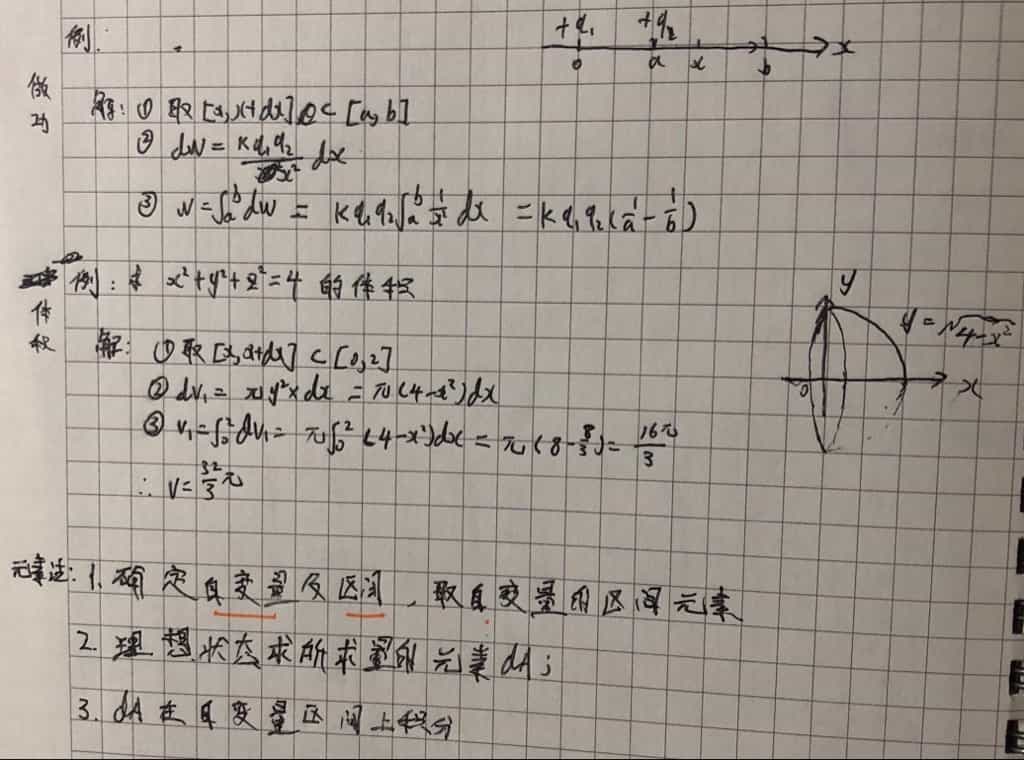 例:
+q₁ +q₂
0 a x b x
做功
解: ① 取[x,x+dx]⊂[a,b]
② dW=kq₁q₂/x² dx
③ W=∫ₐᵇdW = kq₁q₂∫ₐᵇ 1/x² dx = kq₁q₂(1/a-1/b)
体积
例: 求 x²+y²+z²=4 的体积
y
y=√(4-x²)
0 x
解: ① 取[x,x+dx]⊂[0,2]
② dV₁= πy²×dx = π(4-x²)dx
③ V₁=∫₀²dV₁= π∫₀²(4-x²)dx = π(8-8/3)= 16π/3
∴ V=32/3π
元素法: 1. 确定自变量及区间, 取自变量的区间元素
2. 理想状态求所求量的元素dA;
3. dA在自变量区间上积分